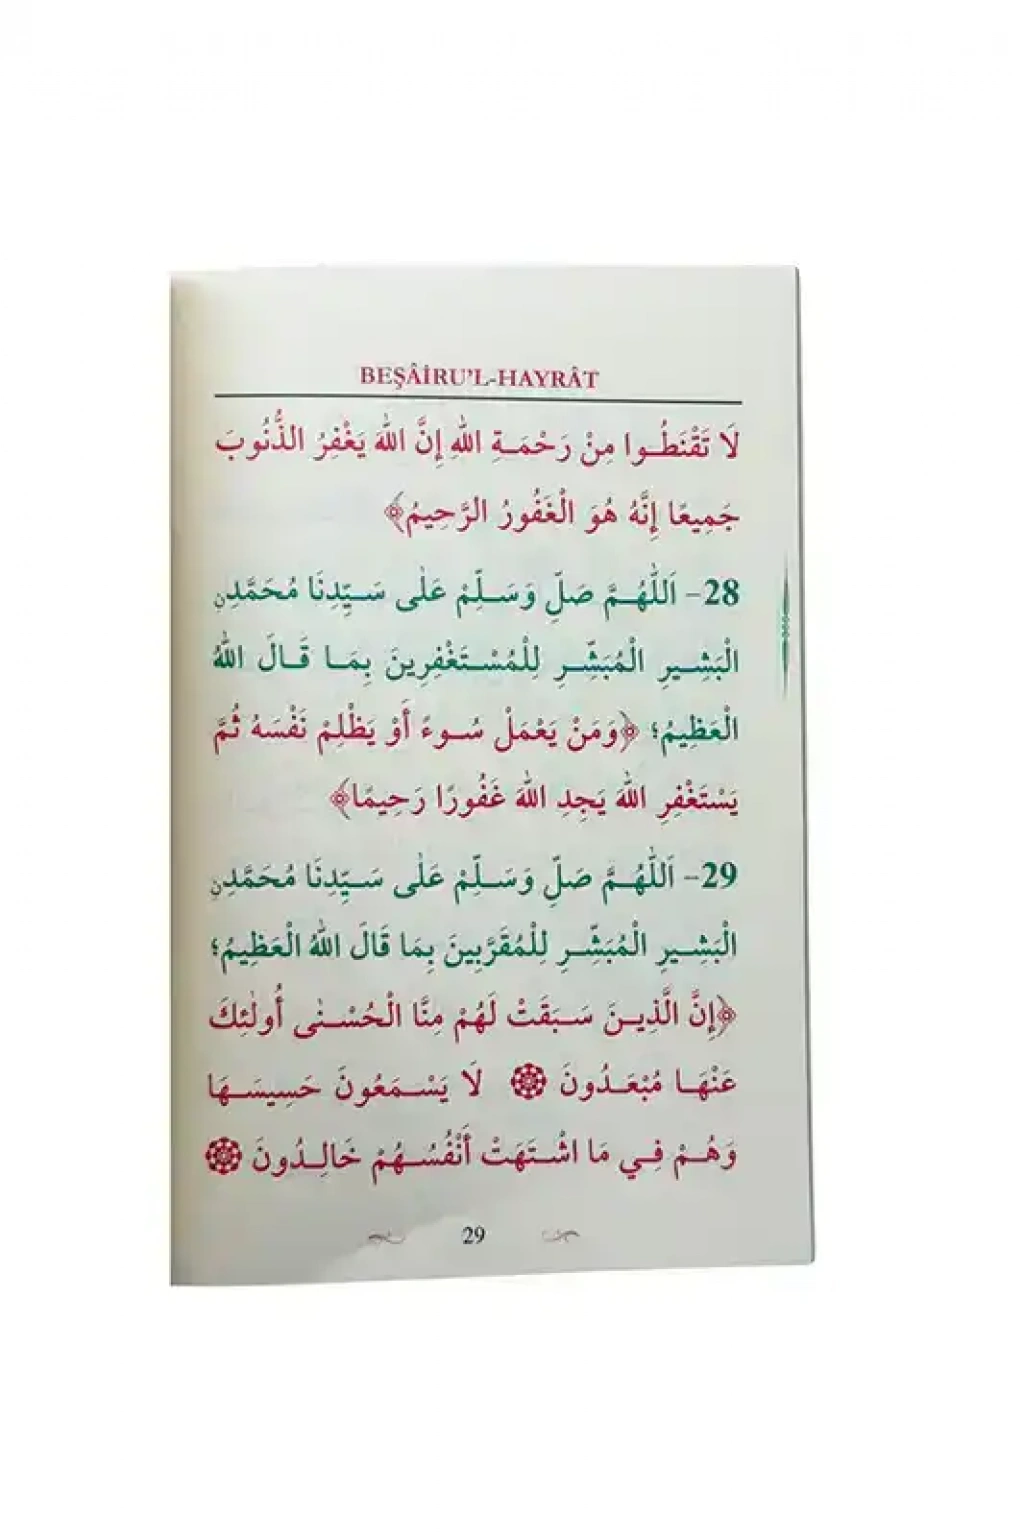 BEŞÂİRU'L-HAYRÂT
لَا تَقْنَطُوا مِنْ رَحْمَةِ اللهِ إِنَّ اللهَ يَغْفِرُ الذُّنُوبَ
جَمِيعًا إِنَّهُ هُوَ الْغَفُورُ الرَّحِيمُ﴾
28- اَللّٰهُمَّ صَلِّ وَسَلِّمْ عَلٰى سَيِّدِنَا مُحَمَّدِنِ
الْبَشِيرِ الْمُبَشِّرِ لِلْمُسْتَغْفِرِينَ بِمَا قَالَ اللهُ
الْعَظِيمُ؛ ﴿وَمَنْ يَعْمَلْ سُوءً أَوْ يَظْلِمْ نَفْسَهُ ثُمَّ
يَسْتَغْفِرِ اللهَ يَجِدِ اللهَ غَفُورًا رَحِيمًا﴾
29- اَللّٰهُمَّ صَلِّ وَسَلِّمْ عَلٰى سَيِّدِنَا مُحَمَّدِنِ
الْبَشِيرِ الْمُبَشِّرِ لِلْمُقَرَّبِينَ بِمَا قَالَ اللهُ الْعَظِيمُ؛
﴿إِنَّ الَّذِينَ سَبَقَتْ لَهُمْ مِنَّا الْحُسْنٰى أُولٰئِكَ
عَنْهَا مُبْعَدُونَ ۞ لَا يَسْمَعُونَ حَسِيسَهَا
وَهُمْ فِي مَا اشْتَهَتْ أَنْفُسُهُمْ خَالِدُونَ ۞
29